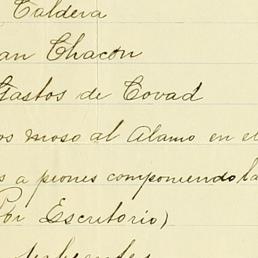 Caldera
an Chacon
Gastos de Covad
os moso al Alamo en el
s a peones componiendo la
Por Escritorio)